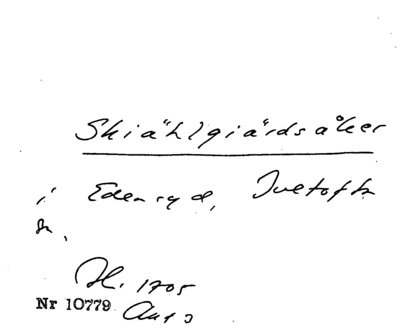 Skiählgiärdsåker
i Edenryd, Ivetofta
sn.
H. 1705
Nr 10779